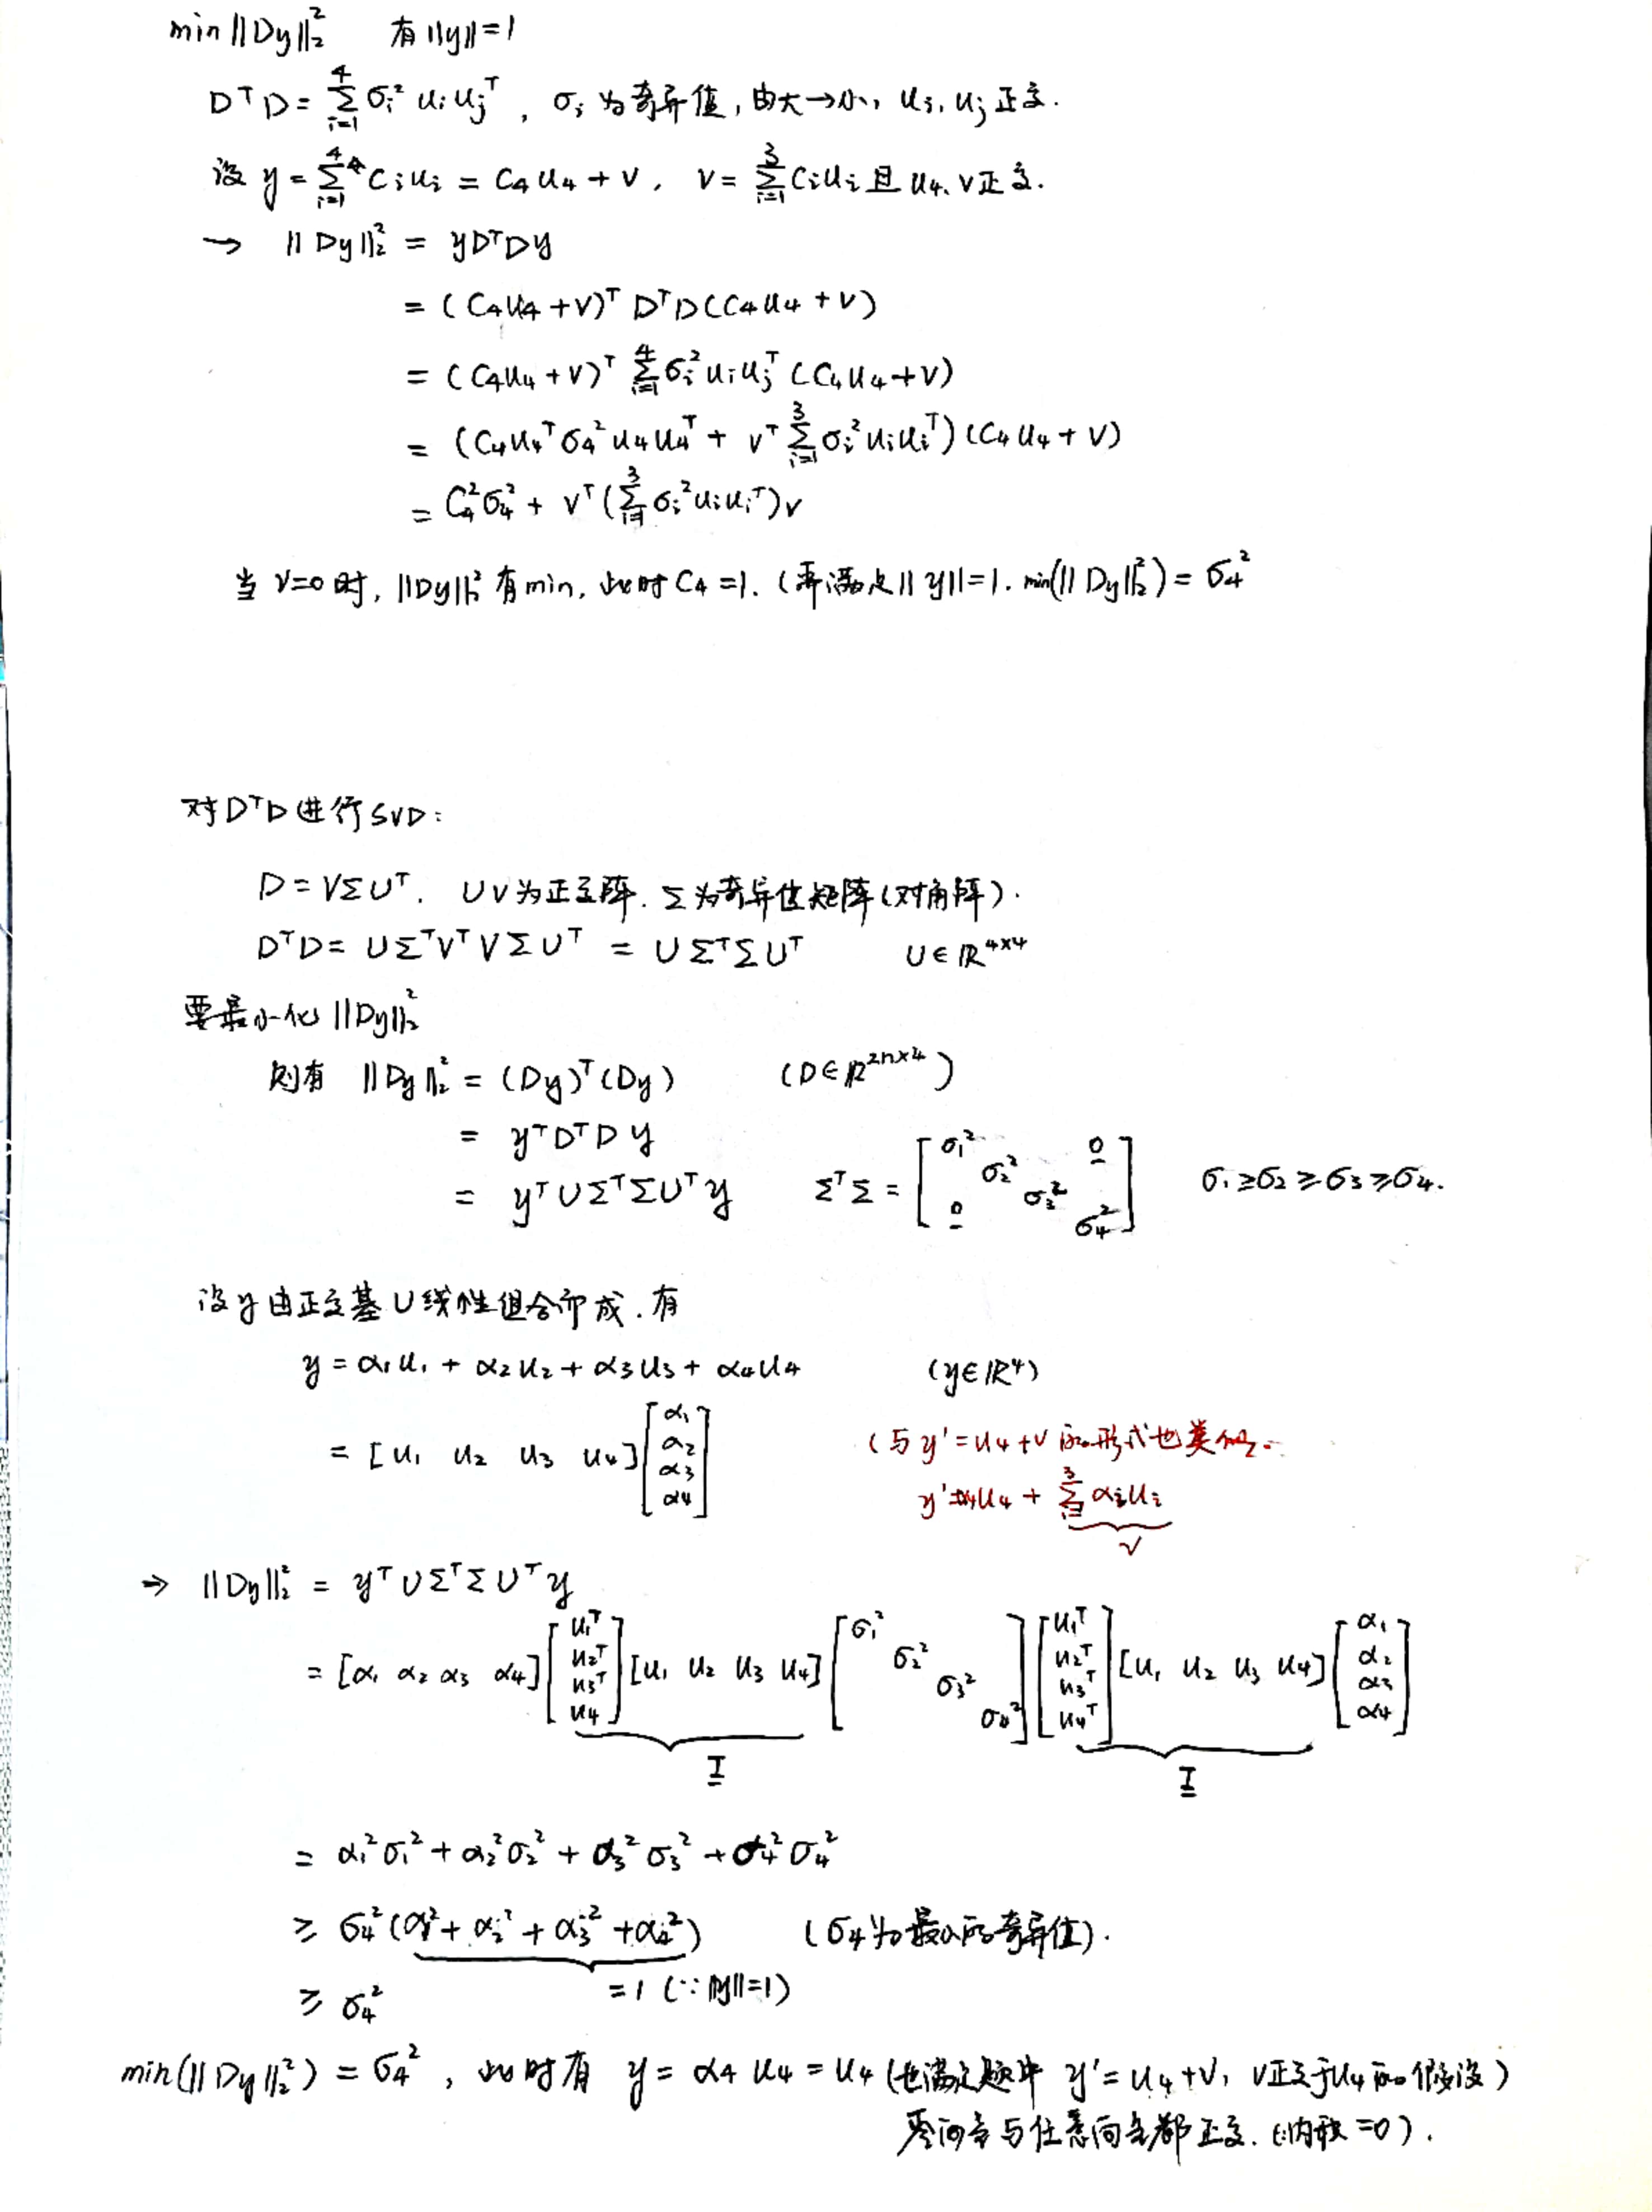 min ||Dy||₂² 有 ||y||=1
DᵀD = Σ_{i=1}^{4} σᵢ² uᵢ uⱼᵀ , σᵢ 为奇异值, 由大→小, uᵢ, uⱼ 正交.
设 y = Σ_{i=1}^{4} Cᵢuᵢ = C₄u₄ + v , v = Σ_{i=1}^{3} Cᵢuᵢ 且 u₄、v正交.
→ ||Dy||₂² = yDᵀDy
= (C₄u₄ + v)ᵀ DᵀD (C₄u₄ + v)
= (C₄u₄ + v)ᵀ Σ_{i=1}^{4} σᵢ² uᵢ uⱼᵀ (C₄u₄ + v)
= (C₄u₄ᵀ σ₄² u₄u₄ᵀ + vᵀ Σ_{i=1}^{3} σᵢ² uᵢuᵢᵀ) (C₄u₄ + v)
= C₄²σ₄² + vᵀ (Σ_{i=1}^{3} σᵢ² uᵢuᵢᵀ) v
当 v=0 时, ||Dy||₂² 有 min, 此时 C₄ = 1. (需满足 ||y||=1. min(||Dy||₂²) = σ₄²
对 DᵀD 进行 SVD:
D = VΣUᵀ. U V 为正交阵. Σ为奇异值矩阵(对角阵).
DᵀD = UΣᵀVᵀVΣUᵀ = UΣᵀΣUᵀ U∈ℝ^{4×4}
要最小化 ||Dy||₂²
则有 ||Dy||₂² = (Dy)ᵀ(Dy) (D∈ℝ^{2n×4})
= yᵀDᵀDy
= yᵀUΣᵀΣUᵀy ΣᵀΣ = [σ₁² σ₂² σ₃² σ₄² 0 0] σ₁≥σ₂≥σ₃≥σ₄.
设y由正交基U线性组合而成. 有
y = α₁u₁ + α₂u₂ + α₃u₃ + α₄u₄ (y∈ℝ⁴)
= [u₁ u₂ u₃ u₄] [α₁ α₂ α₃ α₄]
(与 y' = u₄+v 的形式也类似.
y' = α₄u₄ + Σ_{i=1}^{3} αᵢuᵢ
v
⇒ ||Dy||₂² = yᵀUΣᵀΣUᵀy
= [α₁ α₂ α₃ α₄] [u₁ᵀ u₂ᵀ u₃ᵀ u₄] [u₁ u₂ u₃ u₄] [σ₁² σ₂² σ₃² σ₄²] [u₁ᵀ u₂ᵀ u₃ᵀ u₄ᵀ] [u₁ u₂ u₃ u₄] [α₁ α₂ α₃ α₄]
I I
= α₁²σ₁² + α₂²σ₂² + α₃²σ₃² + α₄²σ₄²
≥ σ₄²(α₁² + α₂² + α₃² + α₄²) (σ₄为最小的奇异值).
≥ σ₄² =1 (∵||y||=1)
min(||Dy||₂²) = σ₄² , 此时有 y = α₄u₄ = u₄ (也满足题中 y' = u₄+v, v正交于u₄的假设)
零向量与任意向量都正交. (内积=0).